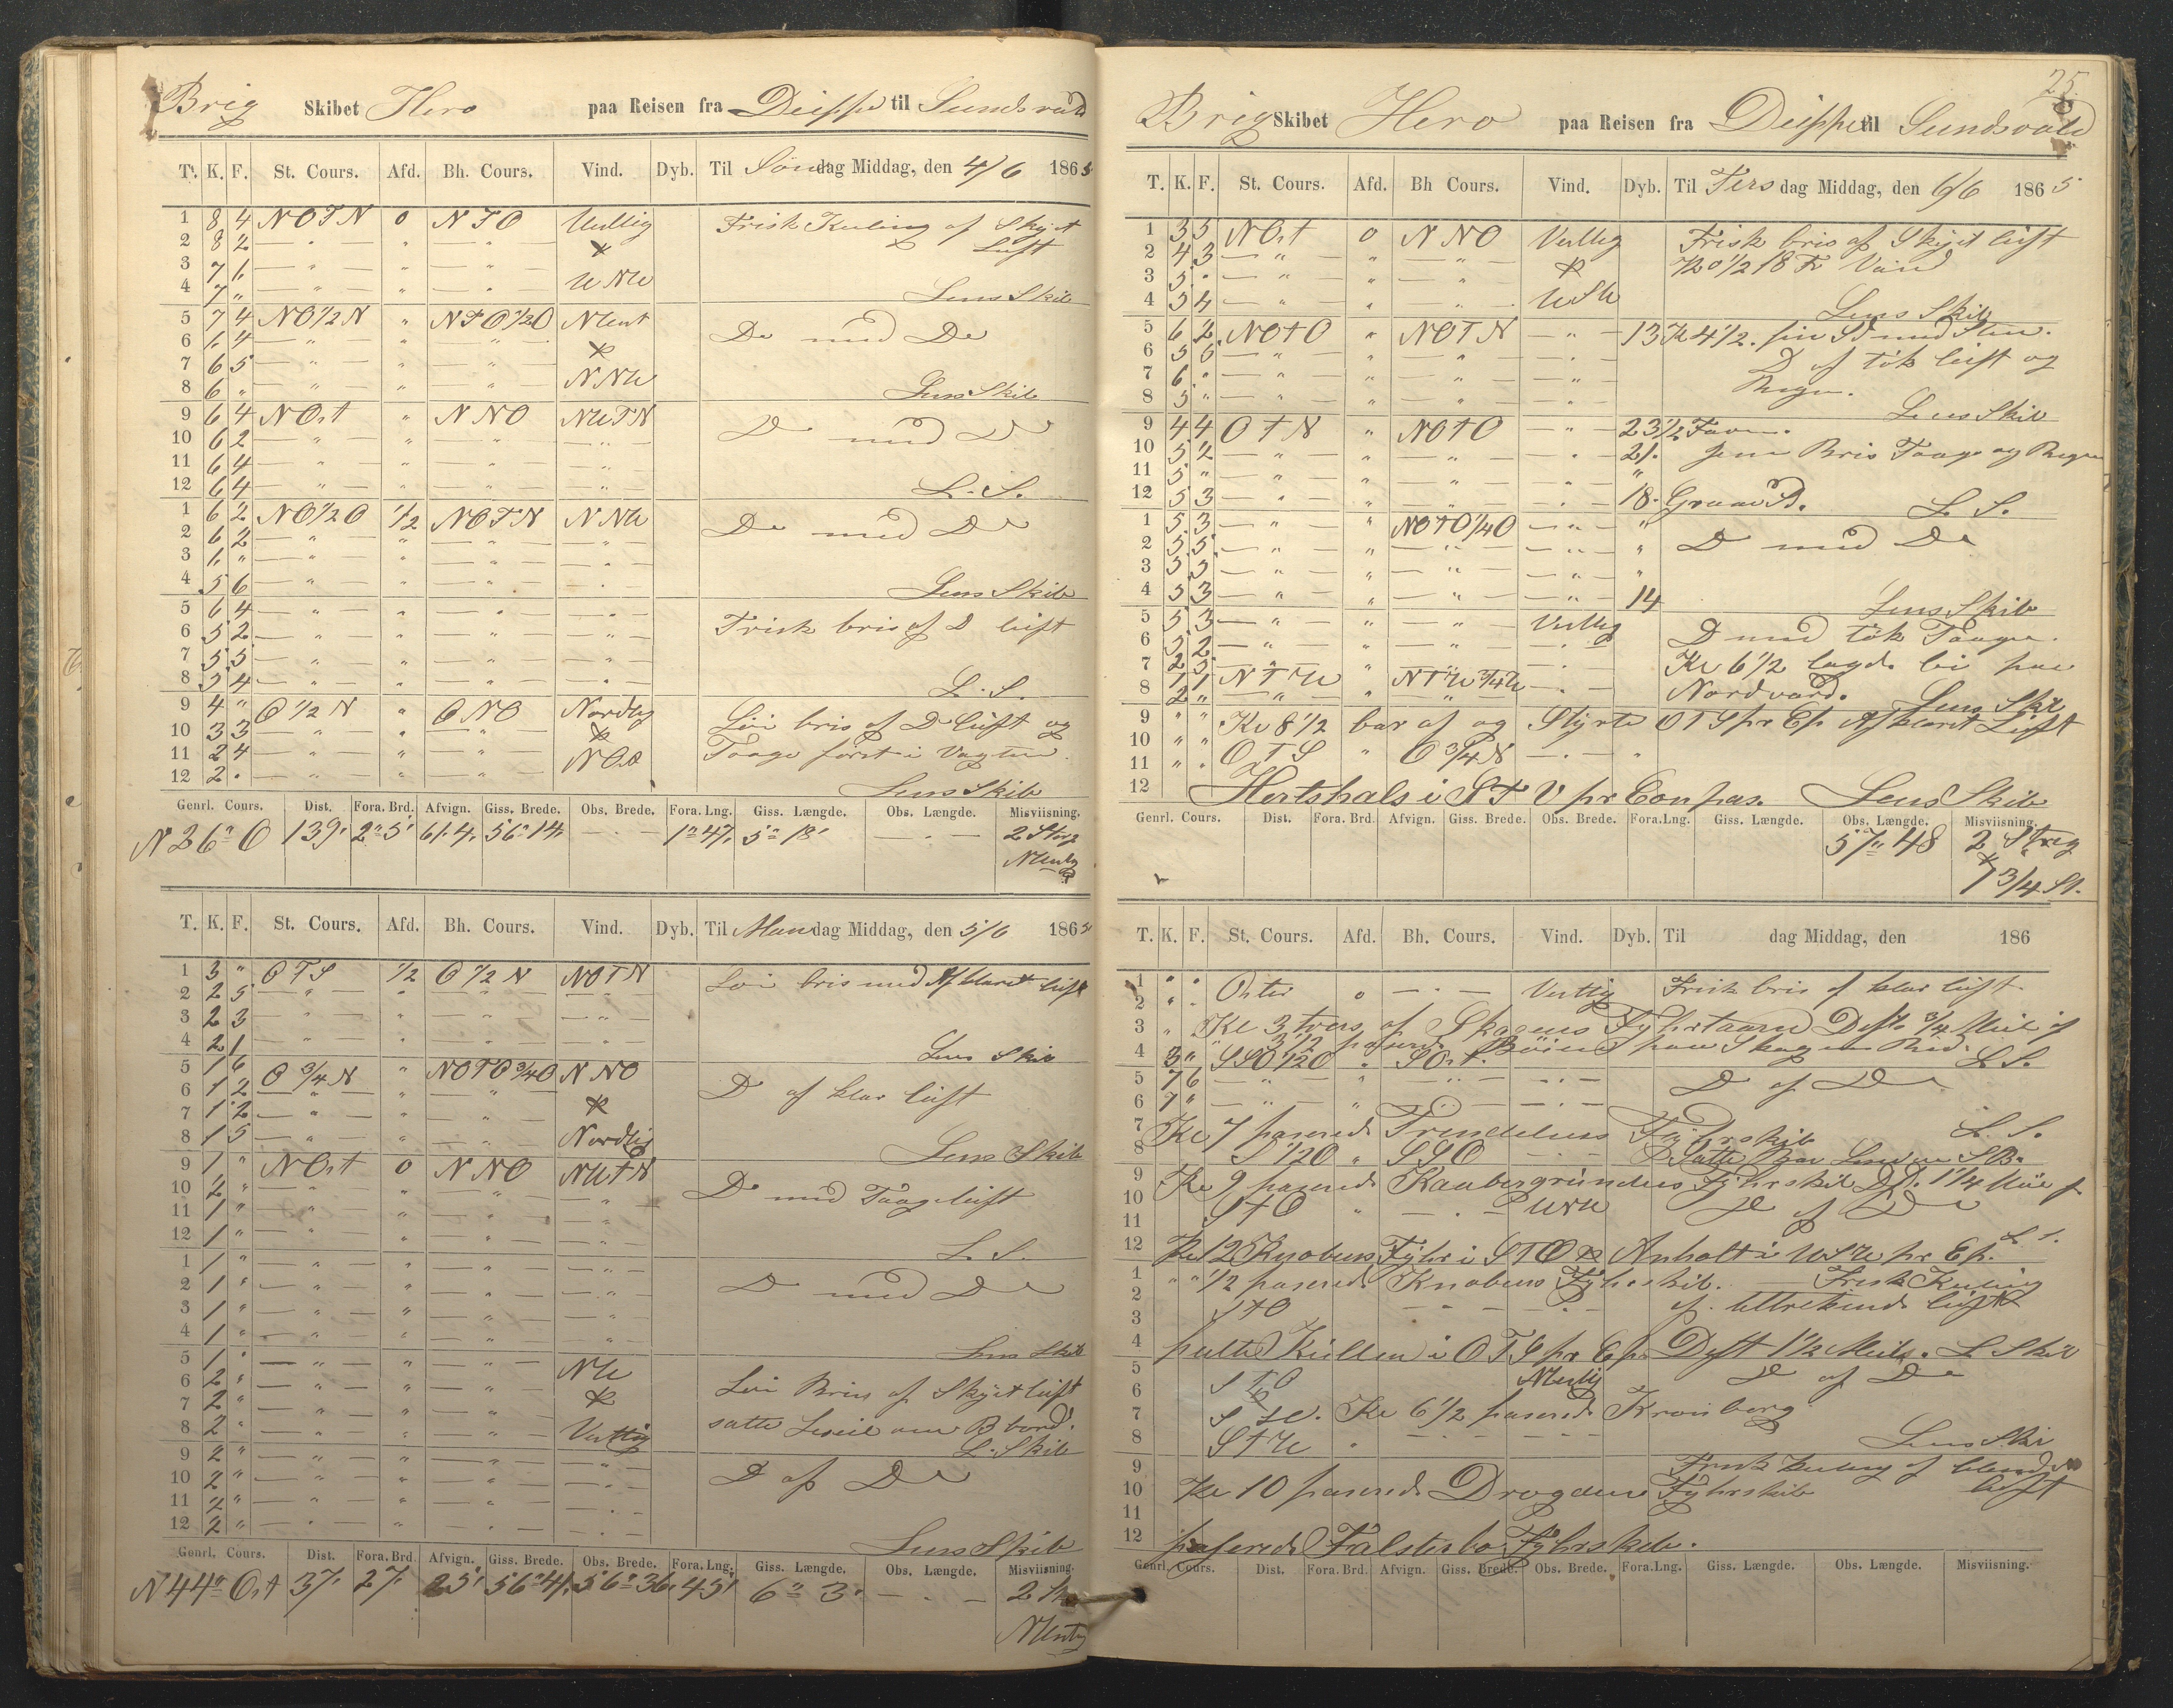 Brig Skibet Hero paa Reisen fra Dieppe til Sundsvald
T. K. F. St. Cours. Afd. Bh. Cours. Vind. Dyb. Til Søndag Middag, den 4/6 1865
1 8 4 NOTN 0 NTO Vestlig Frisk Kuling af Skyet
2 8 2 — " — " — " — & Luft
3 7 6 — " — " — " — WNW
4 7 " — " — " — " — Lens Skib
5 7 4 NO1/2N " NTO1/2O NWest D° med D°
6 6 4 — " — " — " — &
7 6 5 — " — " — " — NNW
8 6 " — " — " — " — Lens Skib
9 6 4 NOst " NNO NWTN D° med D°
10 6 2 — " — " — " — — " —
11 6 4 — " — " — " — — " —
12 6 4 — " — " — " — — " — L. S.
1 6 2 NO1/2O 1/2 NOTN NNW D° med D°
2 6 2 — " — " — " — — " —
3 6 " — " — " — " — — " —
4 5 6 — " — " — " — — " — Lens Skib
5 6 4 — " — " — " — — " — Frisk bris af D luft
6 5 2 — " — " — " — — " —
7 5 5 — " — " — " — — " —
8 5 4 — " — " — " — — " — L. S.
9 4 " O1/2N " ONO Nordlig Løi bris af D° luft og
10 3 3 — " — " — " — & Taage først i Vagten.
11 2 4 — " — " — " — NOst
12 2 " — " — " — " — Lens Skib
Genrl. Cours. Dist. Fora. Brd. Afvign. Giss. Brede. Obs. Brede. Fora. Lng. Giss. Længde. Obs. Længde. Misviisning.
N 26° O 139' 2° 5' 61.4. 56° 14' — " — 1° 47' 5° 18' — " — 2 Streg
NWestlig
T. K. F. St. Cours. Afd. Bh. Cours. Vind. Dyb. Til Mandag Middag, den 5/6 1865
1 3 " OTS 1/2 O1/2N NOTN Løi bris med Afklaret luft
2 2 5 — " — " — " — — " —
3 2 3 — " — " — " — — " —
4 2 1 — " — " — " — — " — Lens Skib
5 1 6 O3/4N " NOTO3/4O NNO D° af klar luft
6 1 2 — " — " — " —
7 1 2 — " — " — " — &
8 1 5 — " — " — " — Nordlig Lens Skib
9 1 " NOst 0 NNO NWTN D° med Taageluft
10 2 " — " — " — " — — " —
11 1 " — " — " — " — — " —
12 1 " — " — " — " — — " — L. S.
1 1 " — " — " — " — — " — D° med D°
2 1 " — " — " — " — — " —
3 1 " — " — " — " — — " —
4 1 " — " — " — " — — " — Lens Skib
5 1 " — " — " — " — NW Løi Bris af Skyet luft
6 2 " — " — " — " — &
7 2 " — " — " — " — satte Leseil om B bord.
8 2 " — " — " — " — Vestlig L. Skib
9 2 " — " — " — " — — " — D° af D°
10 2 " — " — " — " — — " —
11 2 " — " — " — " — — " —
12 2 " — " — " — " — — " — Lens Skib
Genrl. Cours. Dist. Fora. Brd. Afvign. Giss. Brede. Obs. Brede. Fora. Lng. Giss. Længde. Obs. Længde. Misviisning.
N 44° Ost 37' 27' 25' 56° 41' 56° 36' 45' 6° 3' — " — 2 St
NWestlig
25.
Brig Skibet Hero paa Reisen fra Dieppe til Sundsvald
T. K. F. St. Cours. Afd. Bh Cours. Vind. Dyb. Til Tirsdag Middag, den 6/6 1865
1 3 5 NOst 0 NNO Vestlig Frisk bris af Skyet luft
2 4 3 — " — " — " — & Kl 1/2 18 Fv Vand
3 5 " — " — " — " —
4 5 4 — " — " — " — WSW Lens Skib
5 6 2 NOTO " NOTN — " — 13 Kl 4 1/2. fin Sd med Sten.
6 5 6 — " — " — " — — " — D af tøk luft og
7 6 " — " — " — " — — " — Regn.
8 5 " — " — " — " — — " — Lens Skib
9 4 4 OTN " NOTO — " — 23 1/2 Favn.
10 5 2 — " — " — " — — " — 21. Jevn Bris Taage og Regn
11 5 " — " — " — " — — " — "
12 5 3 — " — " — " — — " — 18. Graa Sd. L. S.
1 5 3 — " — " NOTO1/4O — " — " D° med D°
2 5 5 — " — " — " — — " — "
3 5 5 — " — " — " — — " — "
4 5 3 — " — " — " — — " — 14 Lens Skib
5 5 3 — " — " — " — Vestlig D med tøk Taage.
6 5 2 — " — " — " — — " — Kl 6 1/2 lagde bi paa
7 2 5 — " — " — " — — " — Nordvard.
8 1 1 NTW " NTW3/4W — " — Lens Skib
9 " " Kl 8 1/2 bar af og Styrte OTS pr Cp Afklaret Luft
10 " " OTS " O3/4N — " — "
11 " "
12 Hertshals i STV pr Compas. Lens Skib
Genrl. Cours. Dist. Fora. Brd. Afvign. Giss. Brede. Obs. Brede. Fora. Lng. Giss. Længde. Obs. Længde. Misviisning.
57° 48 2 Streg
&
1 3/4 St.
T. K. F. St. Cours. Afd. Bh. Cours. Vind. Dyb. Til dag Middag, den 186
1 " " Oster 0 — " — Vestlig Frisk bris af klar luft
2 " "
3 " Kl 3 tvers af Skagens Fyhrtaarn Dist. 3/4 Miil af
4 3 1/2 paserede Bøien paa Skagens Rev.
3 " SSO1/2O " SOst. L. S.
5 7 6 — " — " — " — — " — D° af D°
6 7 " — " — " — " — — " —
7 Kl 7 paserede Trindelens Fyhrskib L. S.
8 S1/2O " SSO — " — Satte
9 Kl 9 paserede Kaabergrundens Fyhrskib Dst. 1 1/4 Miil af
10 STO " — " — WNW D° af D°
11
12 Kl 12 Knobens Fyhr i STO & Anholt i WSW pr Cp. L. S.
1 " " 1/2 paserede Knobens Fyhrskib. Frisk Kuling
2 STO — " — " — af tiltrekkende luft
3
4 peilte Kullen i OTS pr Cps Dist 1 1/2 Miil. L Skib
5 STO NWestlig D° af D°
6 &
7 S Kl 6 1/2 paserede Kronborg
8 STW " — " — Lens Skib
9 Frisk Kuling af
10 Kl 10 paserede Drogdens Fyhrskib luft
11
12 paserede Falsterbo Fyhrskib.
Genrl. Cours. Dist. Fora. Brd. Afvign. Giss. Brede. Obs. Brede. Fora. Lng. Giss. Længde. Obs. Længde. Misviisning.